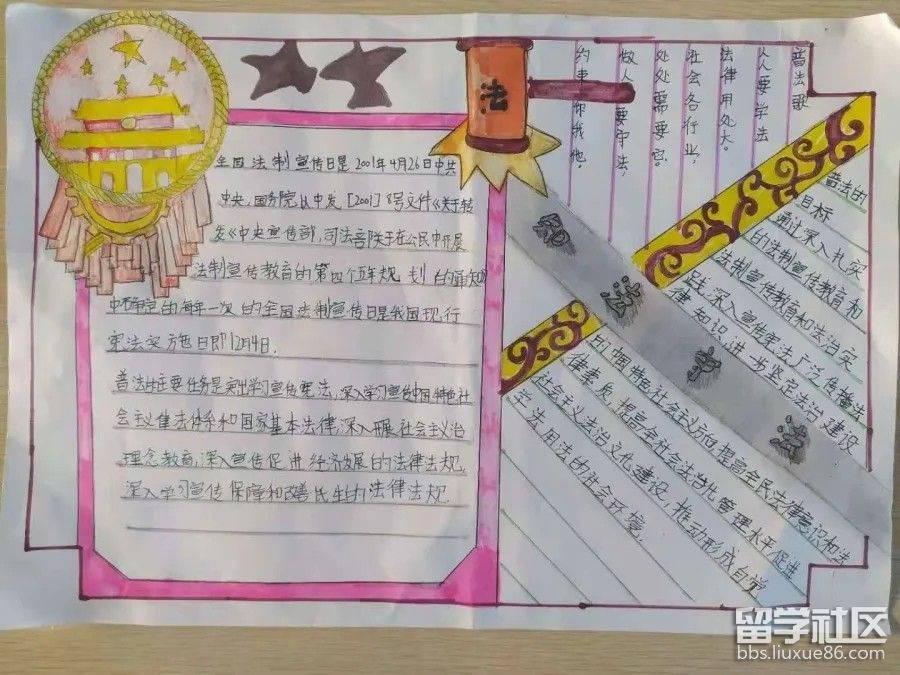 法
普法歌
人人要学法
法律用处大。
社会各行业,
处处需要它。
做人要守法,
约束你我他。
全国法制宣传日是2001年4月26日中共
中央,国务院以中发[2001]8号文件《关于转
发《中央宣传部,司法部关于在公民中开展
法制宣传教育的第四个五年规划的通知》
中确定的每年一次的全国法制宣传日是我国现行
宪法实施日即12月4日.
普法的主要任务是突出学习宣传宪法,深入学习宣传中国特色社
会主义律法体系和国家基本法律,深入开展社会主义治
理念教育,深入宣传促进经济发展的法律法规,
深入学习宣传保障和改善民生的法律法规.
知法守法
普法的
目标
通过深入扎实
的法制宣传教育和
法制宣传教育和法治实
践,深入宣传宪法,广泛传播法
律知识,进一步坚定法治建设
的中国特色社会主义方向,提高全民法律意识和法
律素质,提高全社会法治化管理水平,促进
社会主义法治文化建设,推动形成自觉
学法用法的社会环境.
留学社区
bbs.liuxue86.com